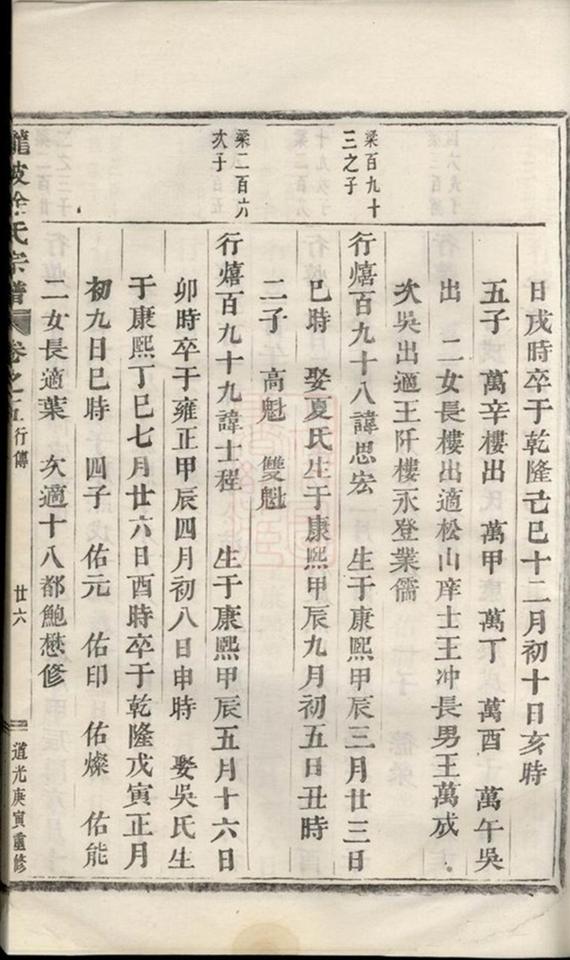 日戌時卒于乾隆己巳十二月初十日亥時
五子 萬辛樓出 萬甲 萬丁 萬酉 萬午吳
出 二女長樓出適松山庠士王冲長男王萬成
次吳出適王阡樓永登業儒
梁百九十
三之子
行熺百九十八諱思宏 生于康熙甲辰三月廿三日
巳時 娶夏氏生于康熙甲辰九月初五日丑時
二子 高魁 雙魁
梁二百六
次子
行熺百九十九諱士程 生于康熙甲辰五月十六日
卯時卒于雍正甲辰四月初八日申時 娶吳氏生
于康熙丁巳七月廿六日酉時卒于乾隆戊寅正月
初九日巳時 四子 佑元 佑印 佑燦 佑能
二女長適葉 次適十八都鮑懋修
龍陂徐氏宗譜 卷之五行傳 廿六 道光庚寅重修